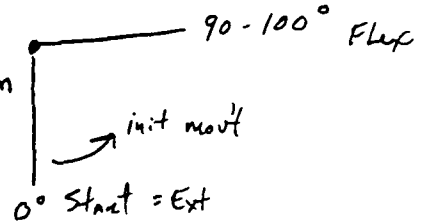 90-100° Flex
n
init mov't
0° Start = Ext